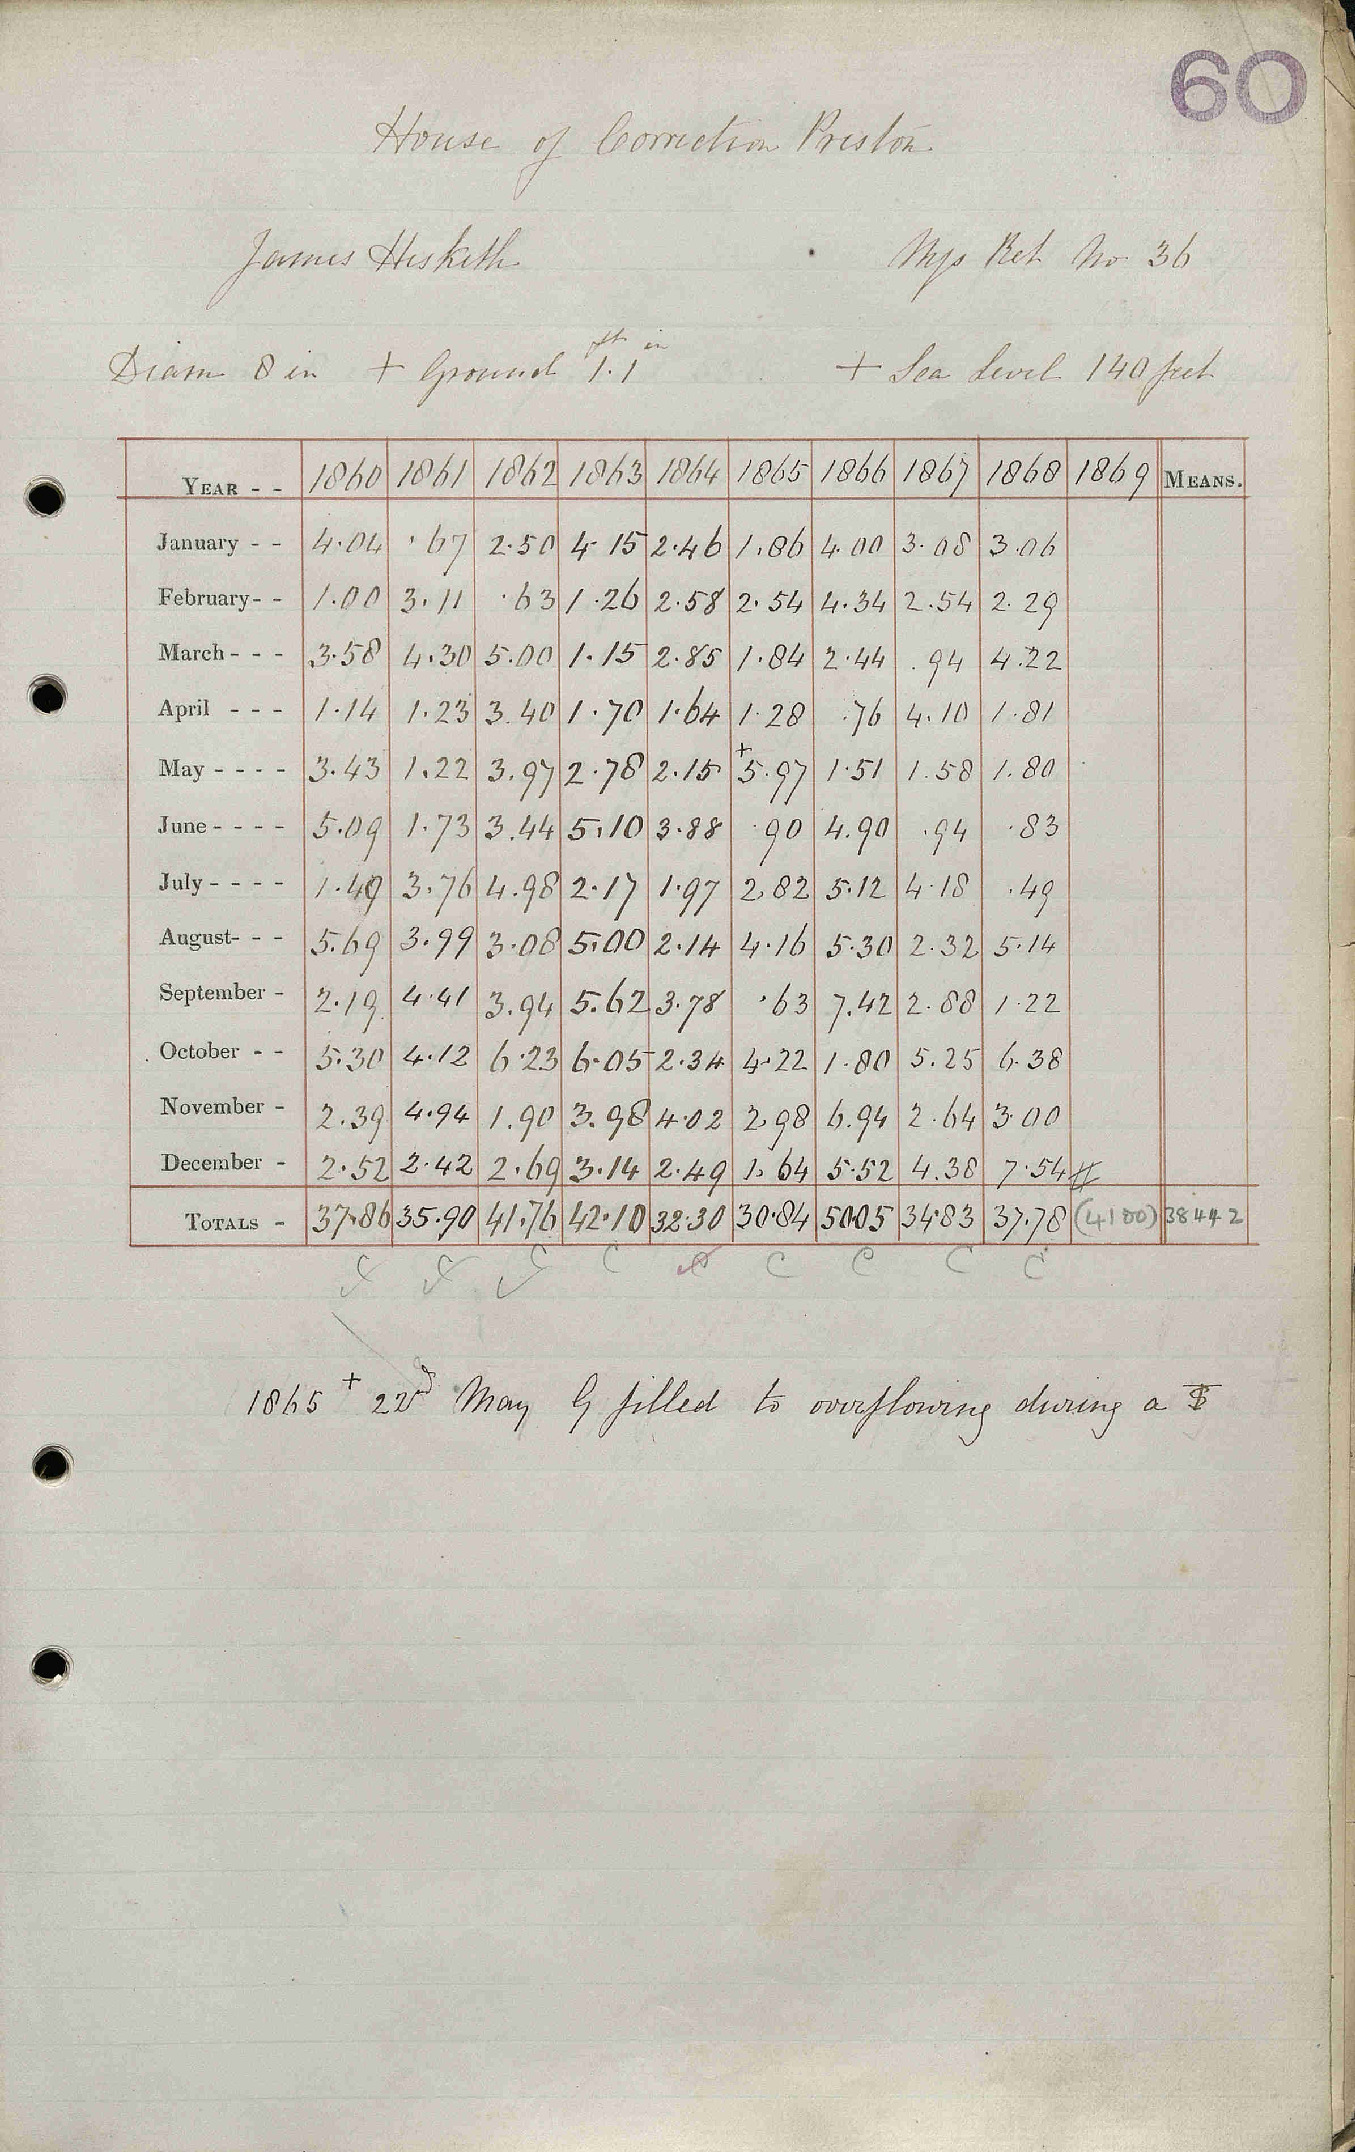 60
House of Correction Preston
James Hesketh Ret No 36
ft in
Diam 8 in + Ground 1.1 + Sea Level 140 feet
YEAR - - 1860 1861 1862 1863 1864 1865 1866 1867 1868 1869 MEANS.
January - - 4.04 .67 2.50 4.15 2.46 1.86 4.00 3.08 3.06
February - - 1.00 3.11 .63 1.26 2.58 2.54 4.34 2.54 2.29
March - - - 3.58 4.30 5.00 1.15 2.85 1.84 2.44 .94 4.22
April - - - 1.14 1.23 3.40 1.70 1.64 1.28 .76 4.10 1.81
May - - - - 3.43 1.22 3.97 2.78 2.15 +5.97 1.51 1.58 1.80
June - - - - 5.09 1.73 3.44 5.10 3.88 .90 4.90 .94 .83
July - - - - 1.49 3.76 4.98 2.17 1.97 2.82 5.12 4.18 .49
August - - - 5.69 3.99 3.08 5.00 2.14 4.16 5.30 2.32 5.14
September - 2.19 4.41 3.94 5.62 3.78 .63 7.42 2.88 1.22
October - - 5.30 4.12 6.23 6.05 2.34 4.22 1.80 5.25 6.38
November - 2.39 4.94 1.90 3.98 4.02 2.98 6.94 2.64 3.00
December - 2.52 2.42 2.69 3.14 2.49 1.64 5.52 4.38 7.54
TOTALS - 37.86 35.90 41.76 42.10 32.30 30.84 50.05 34.83 37.78 (4180) 38442
C C C C C C
1865 + 22d May G filled to overflowing during a